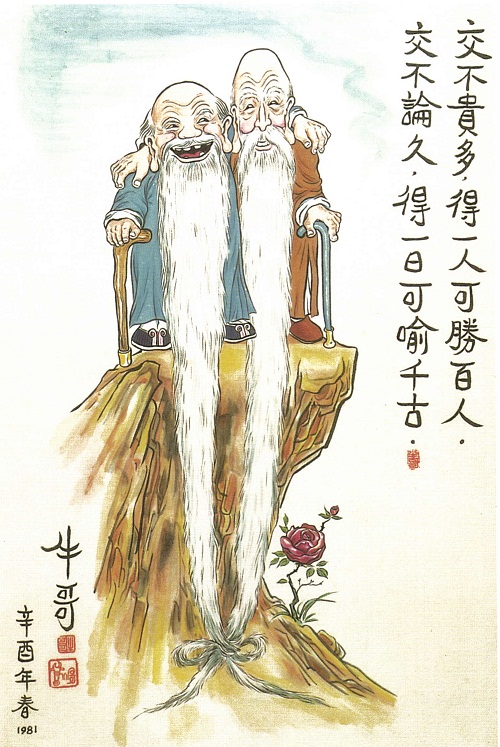 交不貴多，得一人可勝百人．
交不論久．得一日可喻千古．
牛哥
辛酉年春
1981